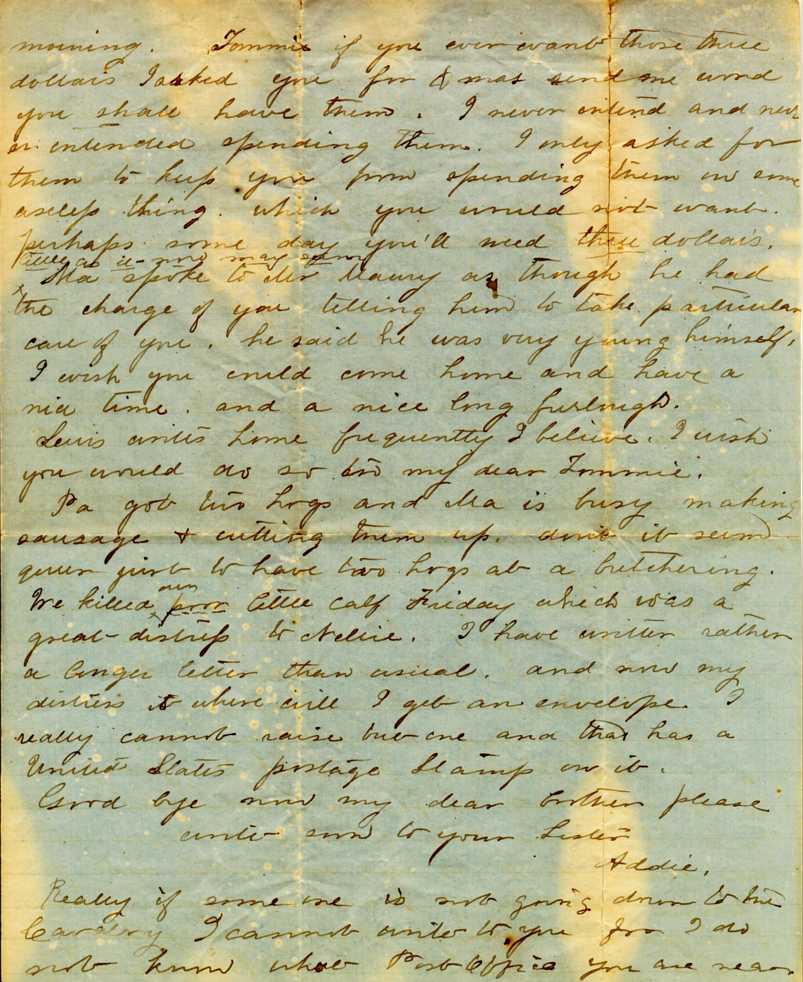 morning. Tommie if you ever want those three
dollars I asked you for Xmas send me word
you shall have them. I never intend and nev
er intended spending them. I only asked for
them to keep you from spending them on some
useless thing. which you would not want.
perhaps some day you'll need these dollars.
little as it now may seem
Ma spoke to Mr Maury as though he had
the charge of you telling him to take particular
care of you. he said he was very young himself,
I wish you could come home and have a
nice time. and a nice long furlough.
Lewis writes home frequently I believe. I wish
you would do so too my dear Tommie.
Pa got two hogs and Ma is busy making
sausage & cutting them up. don't it seem
queer just to have two hogs at a butchering.
We killed our poor little calf Friday which was a
great distress to Nellie. I have writen rather
a longer letter than usual. and now my
distress is where will I get an envelope. I
really cannot raise but one and that has a
United States postage Stamp on it.
Good bye now my dear brother please
write soon to your Sister
Addie.
Really if some one is not going down to the
Cavalry I cannot write to you for I do
not know what Post Office you are near